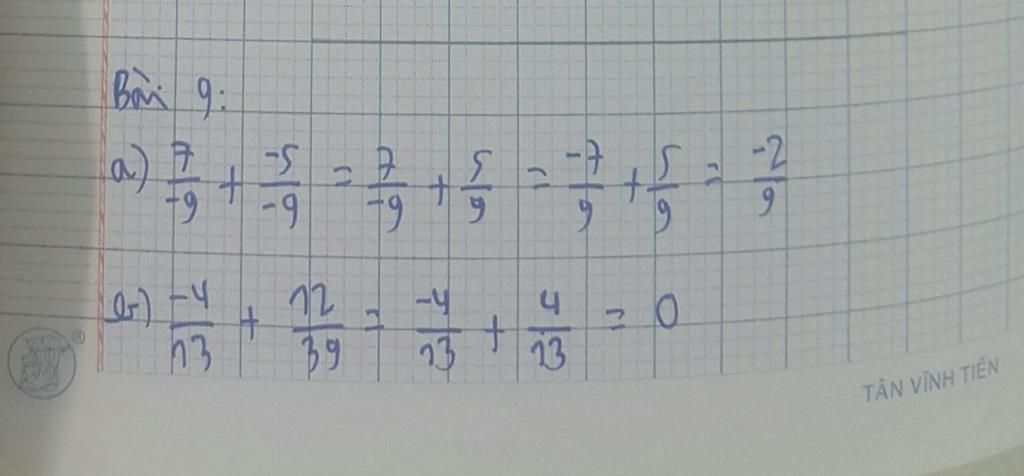 Bài 9:
a) 7/-9 + -5/-9 = 7/-9 + 5/9 = -7/9 + 5/9 = -2/9
b) -4/13 + 12/39 = -4/13 + 4/13 = 0
®
TÂN VĨNH TIẾN